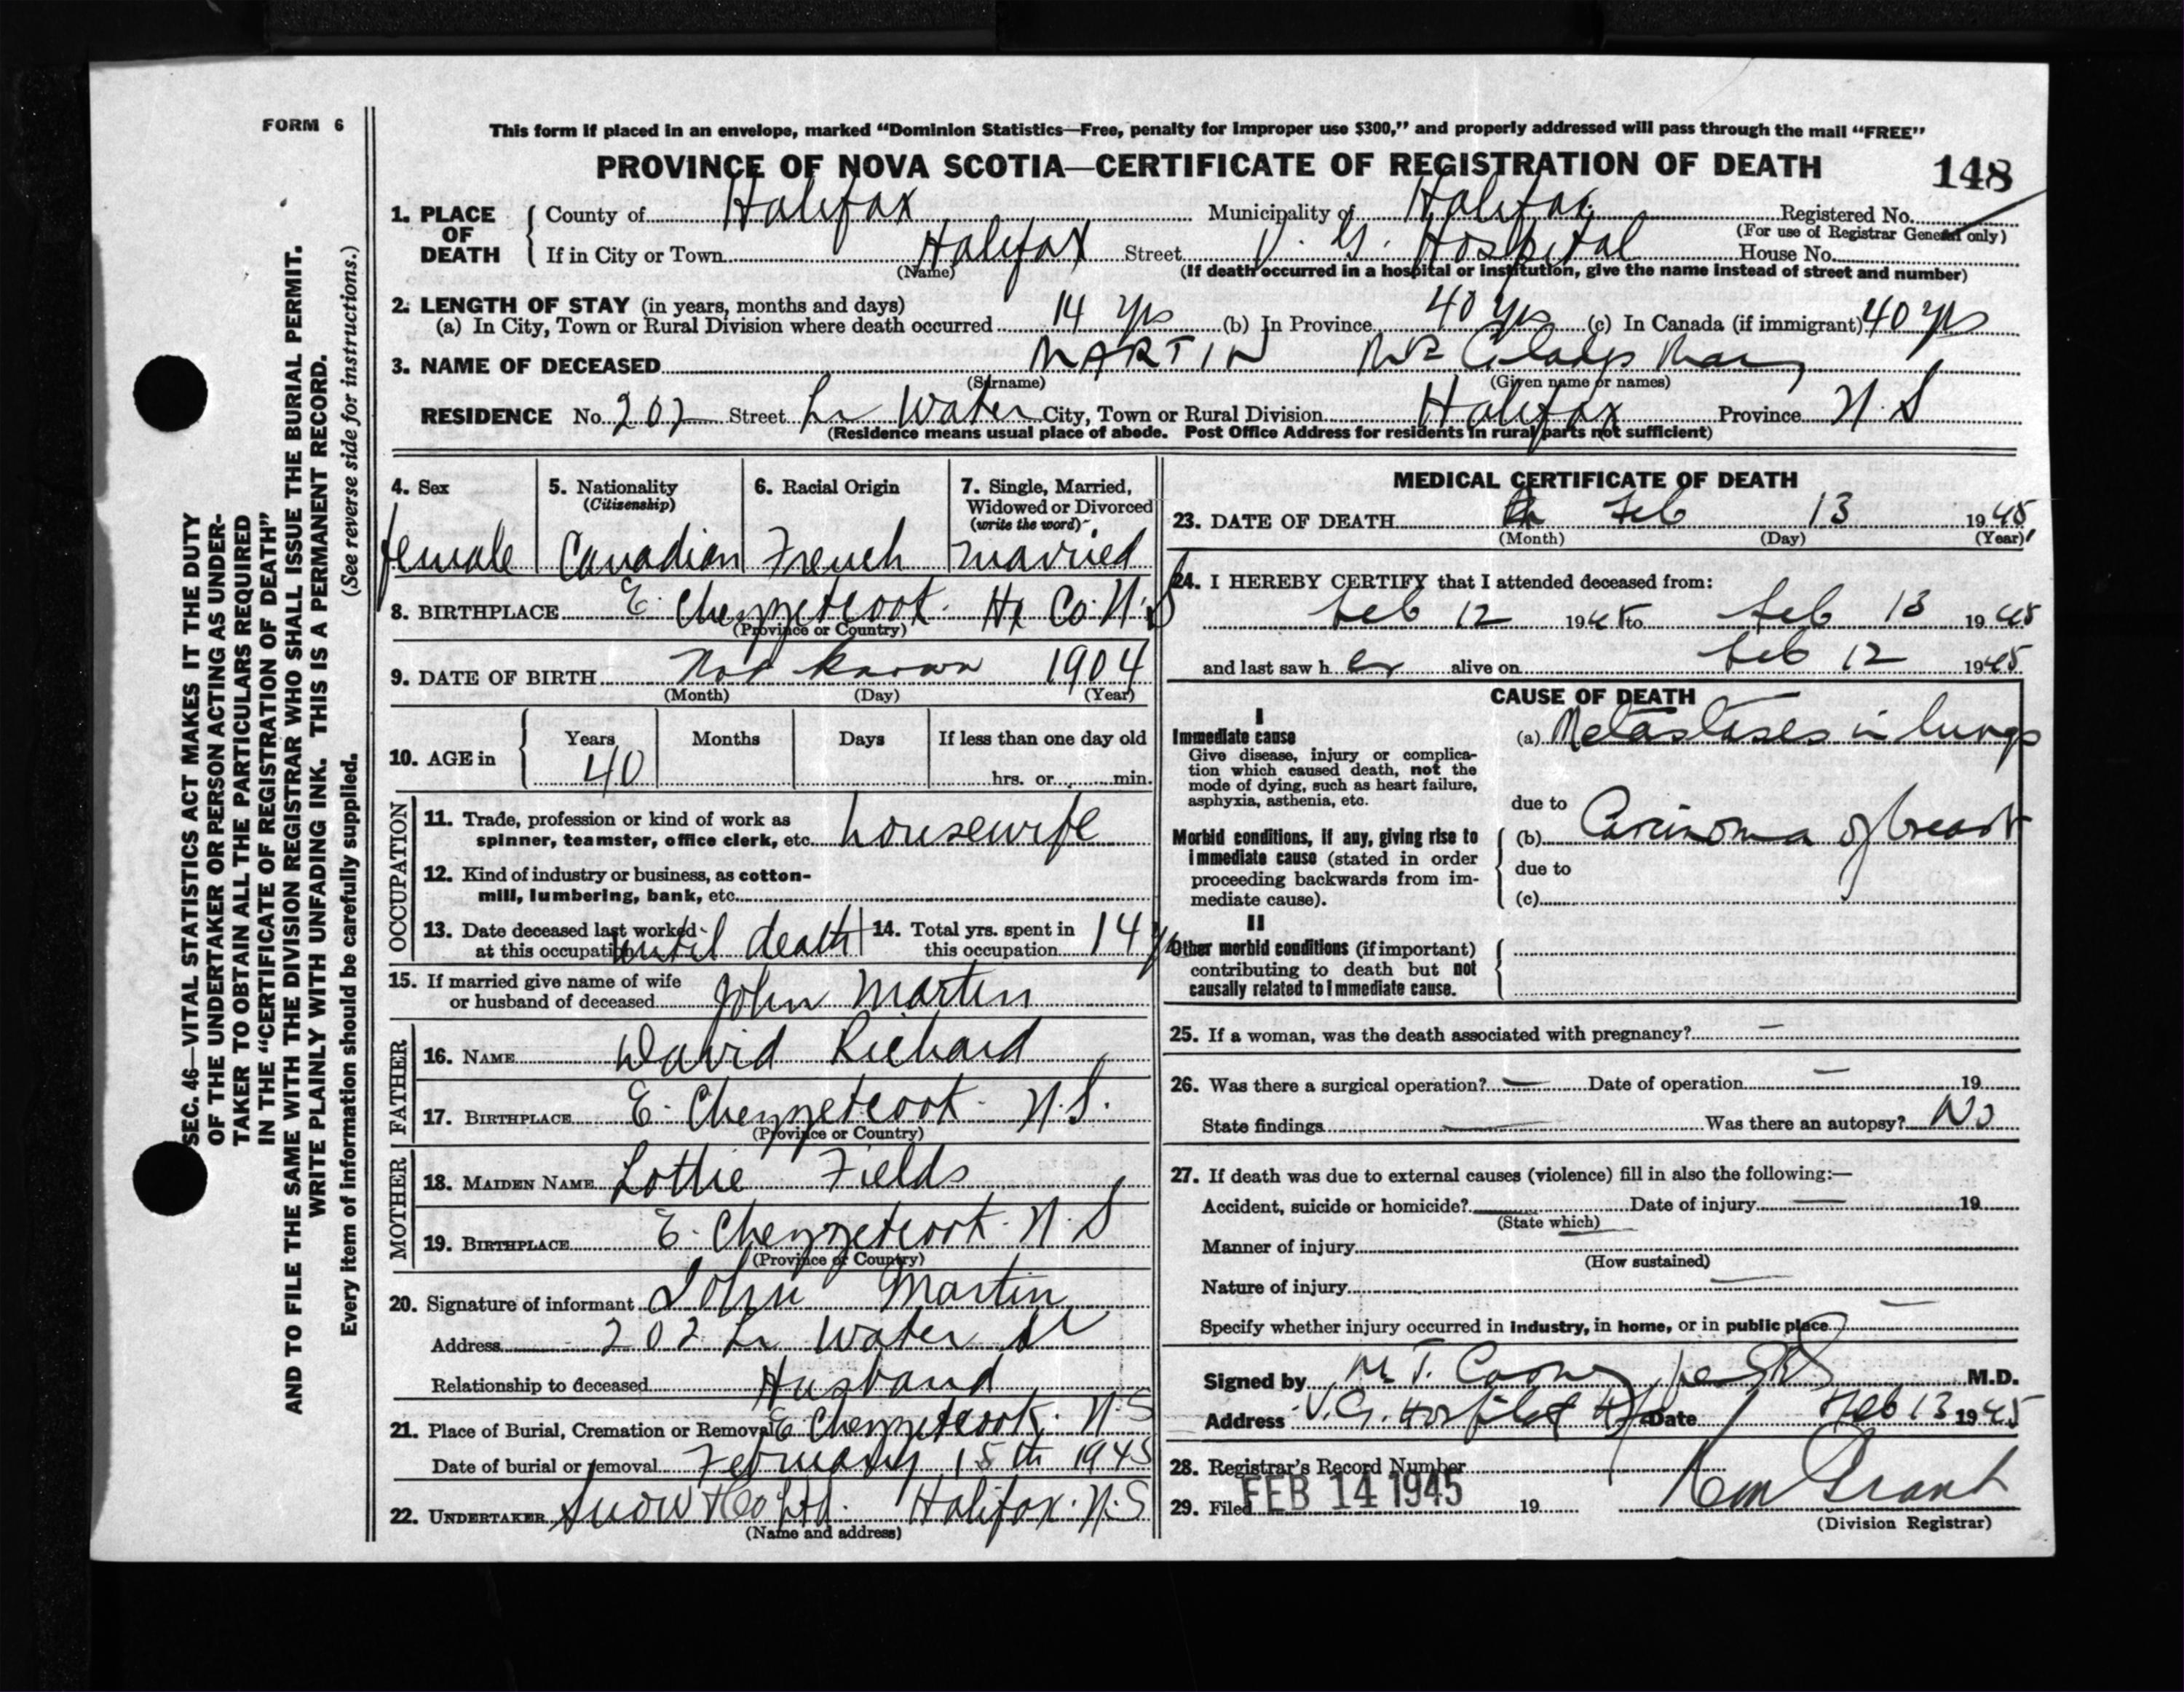 FORM 6
This form if placed in an envelope, marked "Dominion Statistics—Free, penalty for improper use $300," and properly addressed will pass through the mail "FREE"
PROVINCE OF NOVA SCOTIA—CERTIFICATE OF REGISTRATION OF DEATH
148
1. PLACE OF DEATH
County of Halifax Municipality of Halifax Registered No.
(For use of Registrar General only)
If in City or Town Halifax Street V. G. Hospital House No.
(Name) (If death occurred in a hospital or institution, give the name instead of street and number)
2. LENGTH OF STAY (in years, months and days)
(a) In City, Town or Rural Division where death occurred 14 yrs (b) In Province 40 yrs (c) In Canada (if immigrant) 40 yrs
3. NAME OF DECEASED MARTIN Mrs Gladys Mary
(Surname) (Given name or names)
RESIDENCE No. 202 Street Lr Water City, Town or Rural Division Halifax Province N.S
(Residence means usual place of abode. Post Office Address for residents in rural parts not sufficient)
4. Sex
female
5. Nationality
(Citizenship)
Canadian
6. Racial Origin
French
7. Single, Married,
Widowed or Divorced
(write the word)
married
8. BIRTHPLACE E. Chezzetcook. Hx Co. N.S
(Province or Country)
9. DATE OF BIRTH Not known 1904
(Month) (Day) (Year)
10. AGE in Years Months Days If less than one day old
40 hrs. or min.
OCCUPATION
11. Trade, profession or kind of work as
spinner, teamster, office clerk, etc. housewife
12. Kind of industry or business, as cotton-
mill, lumbering, bank, etc.
13. Date deceased last worked
at this occupation until death
14. Total yrs. spent in
this occupation 14 yrs
15. If married give name of wife
or husband of deceased John Martin
FATHER
16. NAME David Richard
17. BIRTHPLACE E. Chezzetcook. N.S.
(Province or Country)
MOTHER
18. MAIDEN NAME Lottie Fields
19. BIRTHPLACE E. Chezzetcook. N.S
(Province or Country)
20. Signature of informant John Martin
Address 202 Lr Water St
Relationship to deceased Husband
21. Place of Burial, Cremation or Removal E. Chezzetcook. N.S
Date of burial or removal February 15th 1945
22. UNDERTAKER Snow & Co Ltd. Halifax. N.S
(Name and address)
MEDICAL CERTIFICATE OF DEATH
23. DATE OF DEATH Feb 13 1945
(Month) (Day) (Year)
24. I HEREBY CERTIFY that I attended deceased from:
Feb 12 1945 to Feb 13 1945
and last saw her alive on Feb 12 1945
CAUSE OF DEATH
I
Immediate cause
Give disease, injury or complica-
tion which caused death, not the
mode of dying, such as heart failure,
asphyxia, asthenia, etc.
(a) Metastases in lungs
due to
Morbid conditions, if any, giving rise to
immediate cause (stated in order
proceeding backwards from im-
mediate cause).
(b) Carcinoma of breast
due to
(c)
II
Other morbid conditions (if important)
contributing to death but not
causally related to immediate cause.
25. If a woman, was the death associated with pregnancy? —
26. Was there a surgical operation? — Date of operation — 19
State findings — Was there an autopsy? No
27. If death was due to external causes (violence) fill in also the following:—
Accident, suicide or homicide? Date of injury — 19
(State which)
Manner of injury
(How sustained)
Nature of injury —
Specify whether injury occurred in industry, in home, or in public place —
Signed by M. T. M.D.
Address V.G. Hospital Date Feb 13 1945
28. Registrar's Record Number
29. Filed FEB 14 1945 19
Grant
(Division Registrar)
SEC. 46—VITAL STATISTICS ACT MAKES IT THE DUTY
OF THE UNDERTAKER OR PERSON ACTING AS UNDER-
TAKER TO OBTAIN ALL THE PARTICULARS REQUIRED
IN THE "CERTIFICATE OF REGISTRATION OF DEATH"
AND TO FILE THE SAME WITH THE DIVISION REGISTRAR WHO SHALL ISSUE THE BURIAL PERMIT.
WRITE PLAINLY WITH UNFADING INK. THIS IS A PERMANENT RECORD.
Every item of information should be carefully supplied. (See reverse side for instructions.)